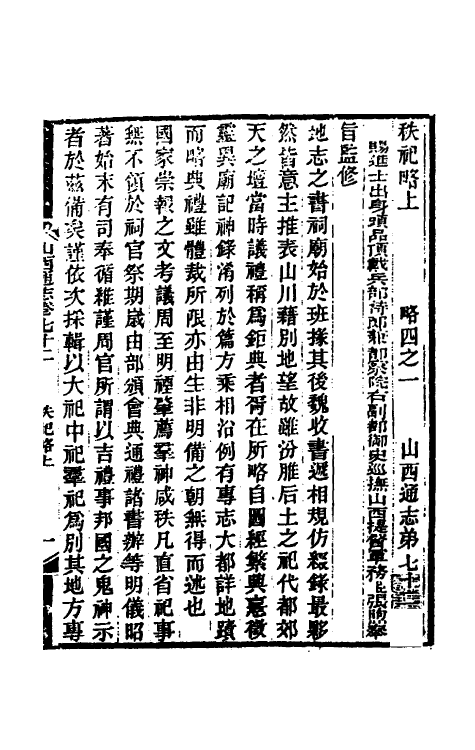 秩祀略上　略四之一　山西通志第七十二
賜進士出身頭品頂戴兵部侍郎兼都察院右副都御史巡撫山西提督軍務臣張煦奉
旨監修
地志之書祠廟始於班掾其後魏收書遞相規仿綴錄最夥
然皆意主推表山川藉別地望故雖汾脽后土之祀代都郊
天之壇當時議禮稱為鉅典者胥在所略自圖經繁興意徵
靈異廟記神錄淆列於篇方乘相沿例有專志大都詳地蹟
而略典禮雖體裁所限亦由生非明備之朝無得而述也
國家崇報之文考議周至明禋肇薦羣神咸秩凡直省祀事
無不領於祠官祭期歲由部頒會典通禮諸書辦等明儀昭
著始末有司奉循維謹周官所謂以吉禮事邦國之鬼神示
者於茲備矣謹依次採輯以大祀中祀羣祀為別其地方專
山西通志卷七十二　秩祀略上　一